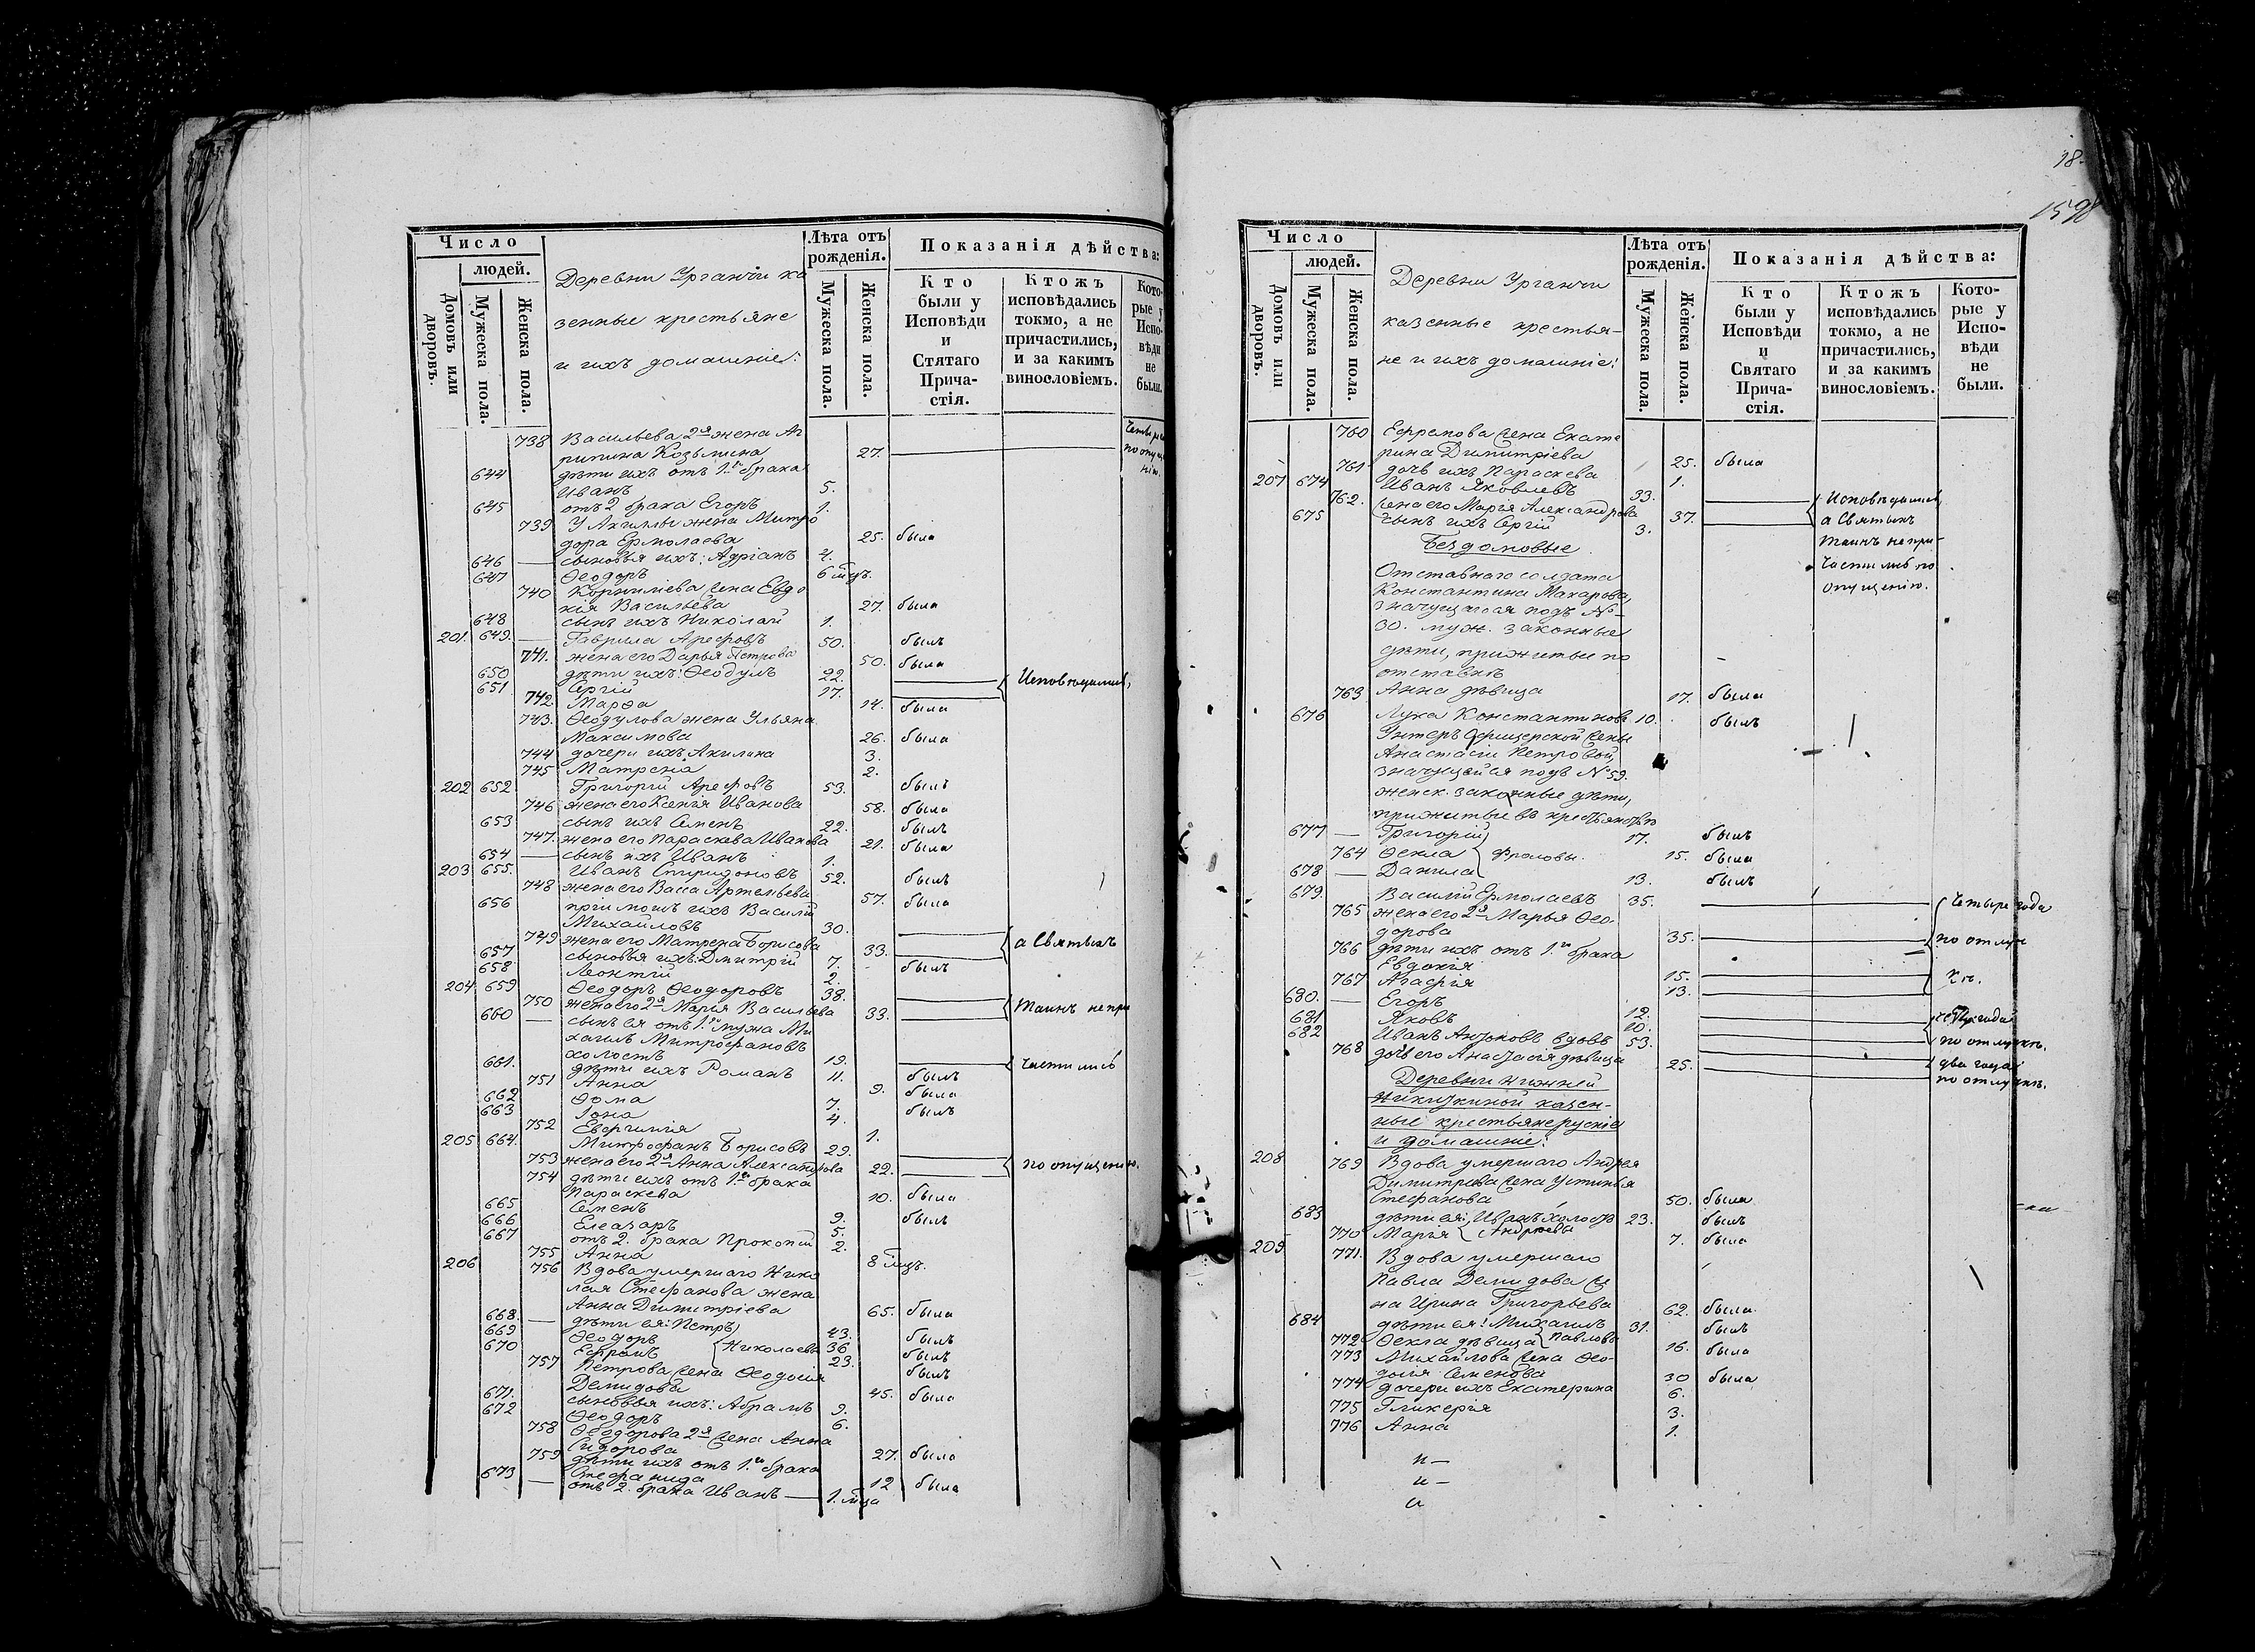 Число
людей.
Домовъ или дворовъ.
Мужеска пола.
Женска пола.
Деревни Урганчи ка
зенные крестьяне
и ихъ домашніе:
Лѣта отъ рожденія.
Мужеска пола.
Женска пола.
Показанія дѣйства:
Кто были у Исповѣди и Стятаго Прича-стія.
Ктожъ исповѣдались токмо, а не причастились, и за какимъ винословіемъ.
Кото-рые у Испо-вѣди не были.
738 Васильева 2я жена Аг
рипина Козьмина 27.
644 дѣти ихъ отъ 1го брака
Иванъ 5.
645 отъ 2 брака Егоръ 1.
739 У Акиллы жена Митро
дора Ермолаева 25. была
646 — сыновья ихъ: Адріанъ 4.
647 Ѳеодоръ 6 мцъ.
740 Корнилиева жена Евдо
кія Васильева 27. была
648 сынъ ихъ Николай 1.
201. 649. — Гаврила Арефовъ 50. былъ
741. жена его Дарья Петрова 50. была
650 дѣти ихъ: Ѳеодулъ 22. Исповѣдались,
651 Сергій 17.
742 Марѳа 14. была
743. Ѳеодулова жена Ульяна
Максимова 26. была
744 дочери ихъ Акилина 3.
745 Матрена 2.
202 652 Григорій Арефовъ 53. былъ
746 жена его Ксенія Иванова 58. была
653 сынъ ихъ Семенъ 22. былъ
747. жена его Параскева Иванова 21. была
654 — сынъ ихъ Иванъ 1.
203 655. Иванъ Спиридоновъ 52. былъ
748 жена его Васса Артемьева 57. была
656 пріимышъ ихъ Василій
Михайловъ 30.
749 жена его Матрена Борисова 33. а Святыхъ
657 сыновья ихъ: Дмитрій 7. былъ
658 Леонтій 2.
204 659 Ѳеодоръ Ѳеодоровъ 38.
750 жена его 2я Марья Васильева 33. Таинъ не при
660 — сынъ ея отъ 1го мужа Ми
хаилъ Митрофановъ
холостъ 19. частились
661. дѣти ихъ Романъ 11. былъ
751 Анна 9. была
662 Ѳома 7. былъ
663 Іона 4.
752 Евгенія 1.
205 664. Митрофанъ Борисовъ 29.
753 жена его 2я Анна Александрова 22. по опущенію.
754 дѣти ихъ отъ 1го брака
Параскева 10. была
665 Семенъ 9. былъ
666 Елеазаръ 5.
667 отъ 2. брака Прокопій 2.
755 Анна 8 мцъ.
206 756 Вдова умершаго Нико
лая Стефанова жена
Анна Димитріева 65. была
668. — дѣти ея: Петръ 43. былъ
669 Ѳеодоръ Николаевы 36 былъ
670 Ефремъ 23. былъ
757 Петрова жена Ѳеодосія
Демидова 45. была
671. сыновья ихъ: Абрамъ 9.
672 Ѳеодоръ 6.
758 Ѳеодорова 2я жена Анна
Сидорова 27. была
759 дѣти ихъ отъ 1го брака
Стефанида 12 была
673 — отъ 2. брака Иванъ — 1. мца
18.
1598
Число
людей.
Домовъ или дворовъ.
Мужеска пола.
Женска пола.
Деревни Урганчи
казенные крестья-
не и ихъ домашніе:
Лѣта отъ рожденія.
Мужеска пола.
Женска пола.
Показанія дѣйства:
Кто были у Исповѣди и Святаго Прича-стія.
Ктожъ исповѣдались токмо, а не причастились, и за какимъ винословіемъ.
Кото-рые у Испо-вѣди не были.
760 Ефремова жена Екате
рина Димитріева 25. была
761 дочь ихъ Параскева 1.
207 674 Иванъ Яковлевъ 33. Исповѣдались,
762. жена его Марія Александрова 37. а Святыхъ
675 сынъ ихъ Сергій 3. Таинъ не при-
Бездомовые. частились по
Отставнаго солдата опущенію.
Константина Макарова,
значущагося подъ №
30. муж. законные
дѣти, прижитые по
отставкѣ
763 Анна дѣвица 17. была
676 Лука Константиновъ 10. былъ
Унтеръ офицерской жены
Анастасіи Петровой,
значущейся подъ № 59.
женск. законные дѣти,
прижитые въ крестьянствѣ
677 — Григорій 17. былъ
764 Ѳекла Фроловы. 15. была
678 — Данила 13. былъ
679. Василій Ермолаевъ 35. Четыре года
765 жена его 2я Марья Ѳео-
дорова 35. по отлуч
766 дѣти ихъ отъ 1го брака
Евдокія 15. кѣ.
767 Агафія 13.
680. — Егоръ 12.
681 Яковъ 10. года
682 Иванъ Антоновъ вдовъ 53. по отлучкѣ.
768 дочь его Анастасія дѣвица 25. два года
по отлучкѣ.
Деревни Нижней
Никиткиной казен-
ные крестьяне русскіе
и домашніе:
208 769 Вдова умершаго Андрея
Димитріева жена Устинья
Стефанова 50. была
683 дѣти ея: Иванъ холостъ 23. былъ
770 Марія Андреевы 7. была
209 771. Вдова умершаго
Павла Демидова же
на Ирина Григорьева 62. была.
684 дѣти ея: Михаилъ 31. былъ
772 Ѳекла дѣвица Павловы 16. была
773 Михайлова жена Ѳео-
досія Семенова 30 была
774 дочери ихъ Екатерина 6.
775 Гликерія 3.
776 Анна 1.